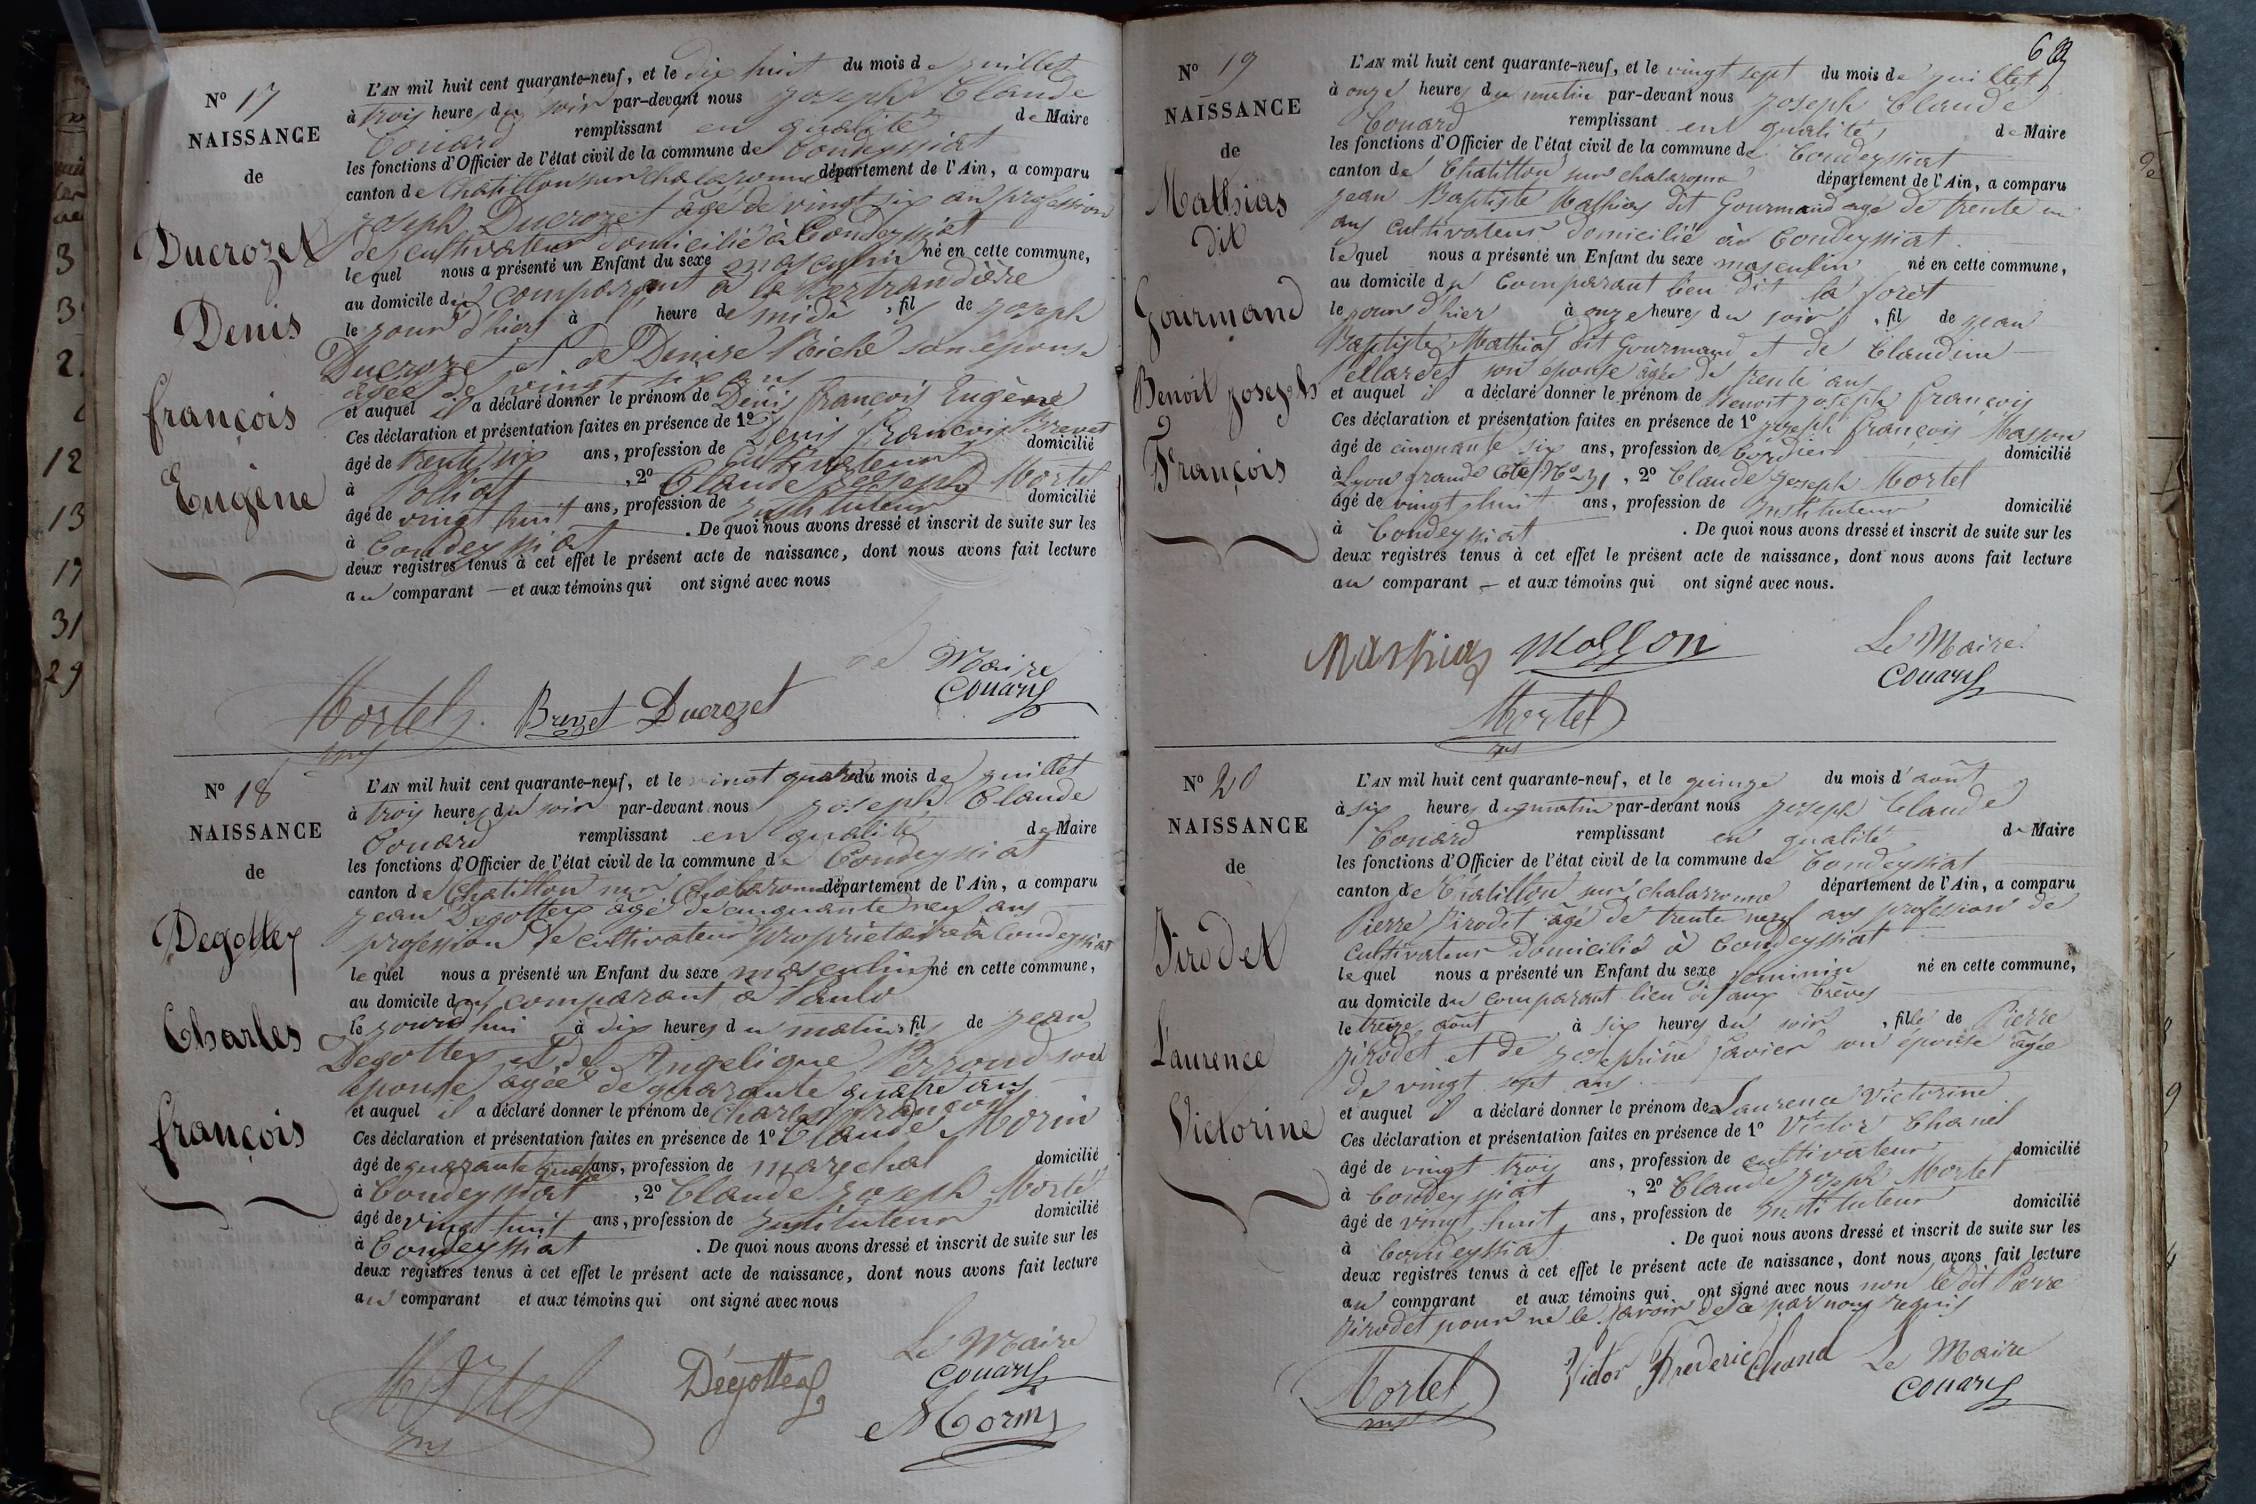 N° 17
NAISSANCE
de
Ducrozet
Denis
françois
Eugène
L'AN mil huit cent quarante-neuf, et le dix huit du mois de juillet
à trois heures du soir par-devant nous joseph Claude
Couard remplissant en qualité de Maire
les fonctions d'Officier de l'état civil de la commune de Condeyssiat
canton de Chatillon sur chalaronne département de l'Ain, a comparu
joseph Ducrozet âgé de vingt six an profession
de cultivateur domicilié à Condeyssiat
lequel nous a présenté un Enfant du sexe masculin né en cette commune,
au domicile du comparant à la Bertrandière
le jour d'hier à heure de midi, fil de joseph
Ducrozet et de Denise Biche son épouse
agée de vingt six ans
et auquel il a déclaré donner le prénom de Denis françois Eugène
Ces déclaration et présentation faites en présence de 1° Denis françois Brevet
âgé de trente six ans, profession de cultivateur domicilié
à Polliat, 2° Claude joseph Mortel
âgé de vingt huit ans, profession de instituteur domicilié
à Condeyssiat. De quoi nous avons dressé et inscrit de suite sur les
deux registres tenus à cet effet le présent acte de naissance, dont nous avons fait lecture
au comparant — et aux témoins qui ont signé avec nous
Maire
Mortel Brevet Ducrozet Couard
N° 18
NAISSANCE
de
Degottex
Charles
françois
L'AN mil huit cent quarante-neuf, et le vingt quatre du mois de juillet
à trois heures du soir par-devant nous joseph Claude
Couard remplissant en qualité de Maire
les fonctions d'Officier de l'état civil de la commune de Condeyssiat
canton de Chatillon sur Chalaronne département de l'Ain, a comparu
jean Degottex âgé de cinquante neuf ans
profession de cultivateur propriétaire à Condeyssiat
lequel nous a présenté un Enfant du sexe masculin né en cette commune,
au domicile du comparant à
le jourd'hui à dix heures du matin, fil de jean
Degottex et de Angelique Perroud son
épouse agée de quarante quatre ans
et auquel il a déclaré donner le prénom de Charles françois
Ces déclaration et présentation faites en présence de 1° Claude Morin
âgé de quarante quatre ans, profession de marechal domicilié
à Condeyssiat, 2° Claude joseph Mortel
âgé de vingt huit ans, profession de instituteur domicilié
à Condeyssiat. De quoi nous avons dressé et inscrit de suite sur les
deux registres tenus à cet effet le présent acte de naissance, dont nous avons fait lecture
au comparant et aux témoins qui ont signé avec nous
Le Maire
Mortel Dégottex Couard
Morin
63
N° 19
NAISSANCE
de
Mathias
dit
Gourmand
Benoit joseph
François
L'AN mil huit cent quarante-neuf, et le vingt sept du mois de juillet
à onze heures du matin par-devant nous joseph Claude
Couard remplissant en qualité, de Maire
les fonctions d'Officier de l'état civil de la commune de Condeyssiat
canton de Chatillon sur chalaronne département de l'Ain, a comparu
jean Baptiste Mathias dit Gourmand agé de trente un
ans cultivateur domicilié à Condeyssiat
lequel nous a présenté un Enfant du sexe masculin né en cette commune,
au domicile du Comparant lieu dit la forêt
le jour d'hier à onze heures du soir, fil de jean
Baptiste Mathias dit Gourmand et de Claudine
Pellardet son épouse âgée de trente ans
et auquel il a déclaré donner le prénom de Benoit joseph françois
Ces déclaration et présentation faites en présence de 1° joseph françois Masson
âgé de cinquante six ans, profession de Cordier domicilié
à Lyon grande Côte N° 31, 2° Claude joseph Mortel
âgé de vingt huit ans, profession de instituteur domicilié
à Condeyssiat. De quoi nous avons dressé et inscrit de suite sur les
deux registres tenus à cet effet le présent acte de naissance, dont nous avons fait lecture
au comparant — et aux témoins qui ont signé avec nous.
Mathias Masson Le Maire
Couard
Mortel
N° 20
NAISSANCE
de
Jirodet
Laurence
Victorine
L'AN mil huit cent quarante-neuf, et le quinze du mois d'août
à six heures du matin par-devant nous joseph Claude
Couard remplissant en qualité de Maire
les fonctions d'Officier de l'état civil de la commune de Condeyssiat
canton de Chatillon sur chalaronne département de l'Ain, a comparu
Pierre Jirodet âgé de trente neuf ans profession de
cultivateur domicilié à Condeyssiat
lequel nous a présenté un Enfant du sexe feminin né en cette commune,
au domicile du comparant lieu dit aux
le treize août à six heures du soir, fille de Pierre
jirodet et de josephine Javier son épouse agée
de vingt sept ans
et auquel il a déclaré donner le prénom de Laurence Victorine
Ces déclaration et présentation faites en présence de 1° Victor Chanel
âgé de vingt trois ans, profession de cultivateur domicilié
à Condeyssiat, 2° Claude joseph Mortel
âgé de vingt huit ans, profession de instituteur domicilié
à Condeyssiat. De quoi nous avons dressé et inscrit de suite sur les
deux registres tenus à cet effet le présent acte de naissance, dont nous avons fait lecture
au comparant et aux témoins qui ont signé avec nous non le dit Pierre
jirodet pour ne le savoir de ce par nous requis
Mortel Victor Frederic Chanel Le Maire
Couard